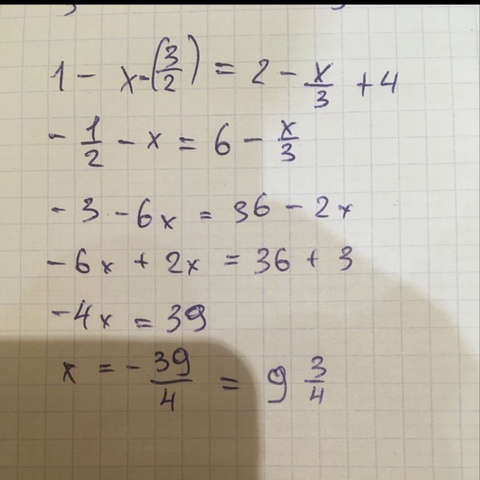 1 - x - (3/2) = 2 - x/3 + 4
- 1/2 - x = 6 - x/3
- 3 - 6x = 36 - 2x
- 6x + 2x = 36 + 3
- 4x = 39
x = - 39/4 = 9 3/4